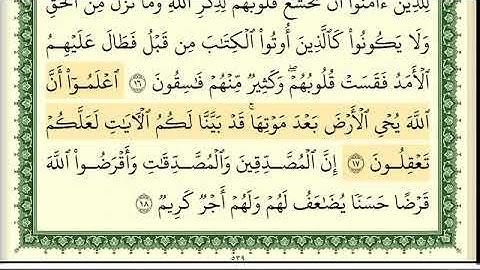 لِلَّذِينَ ءَامَنُوٓا۟ أَن تَخْشَعَ قُلُوبُهُمْ لِذِكْرِ ٱللَّهِ وَمَا نَزَلَ مِنَ ٱلْحَقِّ
وَلَا يَكُونُوا۟ كَٱلَّذِينَ أُوتُوا۟ ٱلْكِتَٰبَ مِن قَبْلُ فَطَالَ عَلَيْهِمُ
ٱلْأَمَدُ فَقَسَتْ قُلُوبُهُمْ ۖ وَكَثِيرٌ مِّنْهُمْ فَٰسِقُونَ ١٦ ٱعْلَمُوٓا۟ أَنَّ
ٱللَّهَ يُحْىِ ٱلْأَرْضَ بَعْدَ مَوْتِهَا ۚ قَدْ بَيَّنَّا لَكُمُ ٱلْءَايَٰتِ لَعَلَّكُمْ
تَعْقِلُونَ ١٧ إِنَّ ٱلْمُصَّدِّقِينَ وَٱلْمُصَّدِّقَٰتِ وَأَقْرَضُوا۟ ٱللَّهَ
قَرْضًا حَسَنًا يُضَٰعَفُ لَهُمْ وَلَهُمْ أَجْرٌ كَرِيمٌ ١٨
٥٣٩